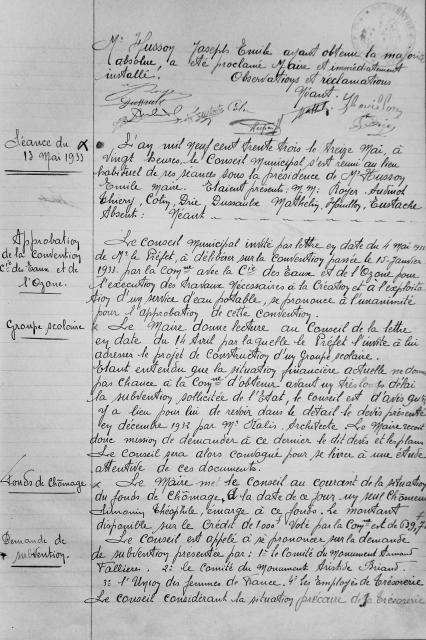 Mr Husson Joseph Emile ayant obtenu la majorité
absolue, a été proclamé Maire et immédiatement
installé.
Observations et réclamations
Néant.
Séance du
13 Mai 1933
L'an mil neuf cent trente trois le treize Mai, à
vingt heures, le Conseil Municipal s'est réuni au lieu
habituel de ses séances sous la présidence de Mr Husson
Emile Maire. Etaient présents: M.M: Royer, Aubriot
Thiéry, Colin, Drié, Dussaulx Mathelin, Houillon, Eustache
Absent: Néant
Approbation
de la Convention
Cie des Eaux et de
l'Ozone.
Le Conseil Municipal invité par lettre en date du 4 mai 1933
de Mr le Préfet, à délibérer sur la Convention passée le 15 Janvier
1933 par la Comne avec la Cie des Eaux et de l'Ozone pour
l'exécution des travaux nécessaires à la Création et à l'exploita
tion d'un service d'eau potable, se prononce à l'unanimité
pour l'approbation de cette convention.
Groupe scolaire
Le Maire donne lecture au Conseil de la lettre
en date du 14 Avril par laquelle le Préfet l'invite à lui
adresser le projet de Construction d'un Groupe scolaire.
Etant entendu que la situation financière actuelle ne donne
pas chance à la Comne d'obtenir avant un très long délai
la subvention sollicitée de l'Etat, le conseil est d'avis qu'il
y a lieu pour lui de revoir dans le détail le devis présenté
en décembre 1932 par Mr Kalis, Architecte. Le Maire reçoit
donc mission de demander à ce dernier le dit devis et les plans
Le Conseil sera alors convoqué pour se livrer à une étude
attentive de ces documents.
Fonds de Chômage
Le Maire met le Conseil au courant de la situation
du fonds de Chômage, à la date de ce jour, un seul Chômeur
Théophile, émarge à ce fonds. Le montant
disponible sur le Crédit de 1000f voté par la Comne est de 639,7
Demande de
subvention.
Le Conseil est appelé à se prononcer sur la demande
de subvention présentée par: 1º le Comité du Monument Armand
Fallières. 2º le Comité du Monument Aristide Briand.
3º l'Union des femmes de France. 4º les Employés de Trésorerie
Le Conseil considérant la situation précaire de la Trésorerie